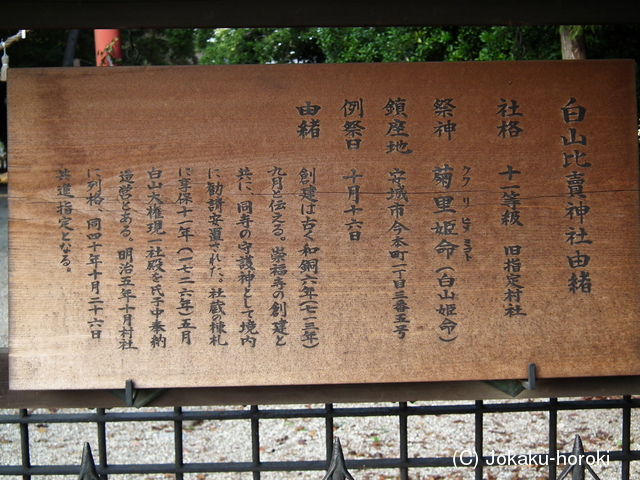 白山比賣神社由緒
社格 十一等級 旧指定村社
祭神 菊里姫命(白山姫命)
ククリヒメノミコト
鎮座地 安城市今本町一丁目三番五号
例祭日 十月十六日
由緒 創建は古く和銅六年(七一三年)
九月と伝える。崇福寺の創建と
共に、同寺の守護神として境内
に勧請安置された、社蔵の棟札
に享保十一年(一七二六年)五月
白山大権現一社殿を氏子中奉納
造営とある。明治五年十月村社
に列格、同四十年十月二十六日
共進指定となる。
(C) Jokaku-horoki